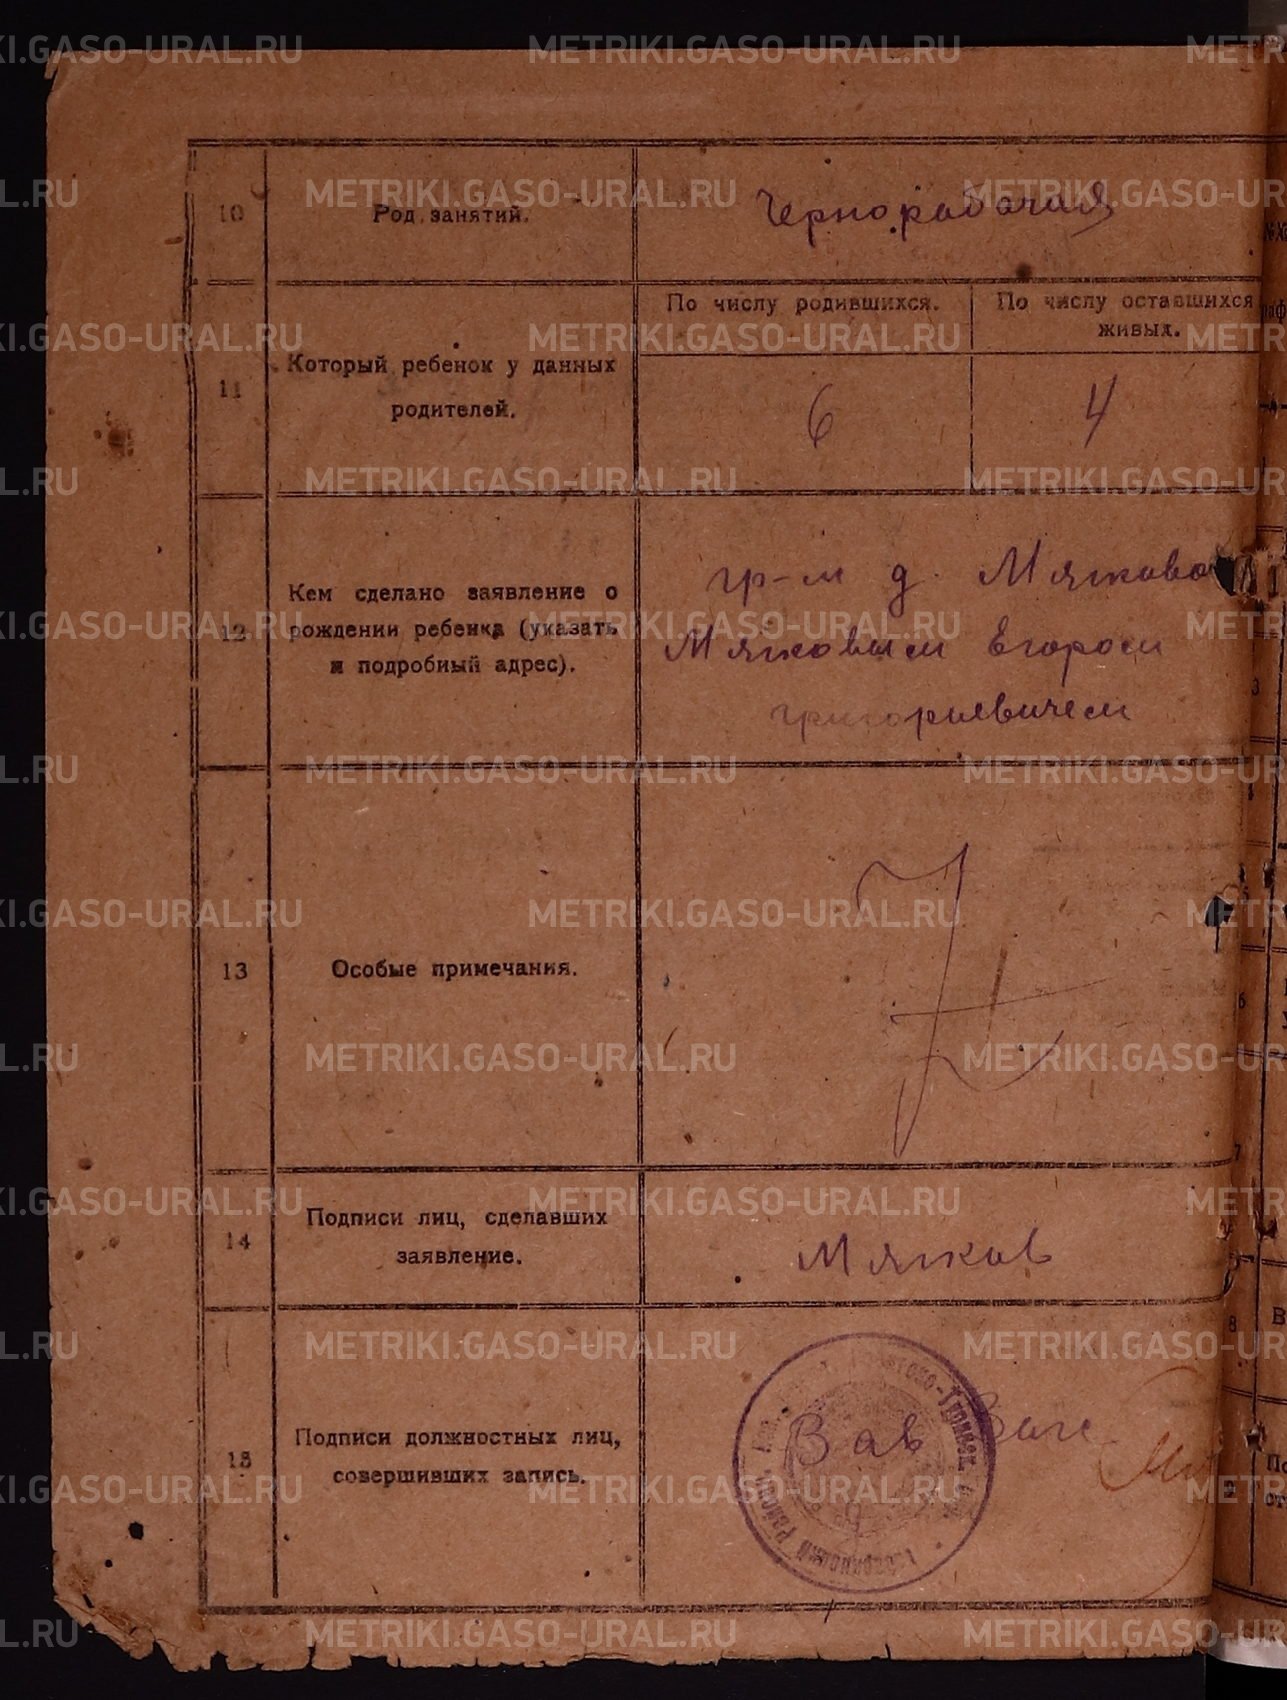 METRIKI.GASO-URAL.RU
10
Род занятий.
Чернорабочая
11
Который ребенок у данных
родителей.
По числу родившихся.
По числу оставшихся
живых.
6
4
12
Кем сделано заявление о
рождении ребенка (указать
и подробный адрес).
гр-м д. Мягкова
Мягковым Егором
григорьевичем
13
Особые примечания.
14
Подписи лиц, сделавших
заявление.
Мягков
15
Подписи должностных лиц,
совершивших запись.
Зав